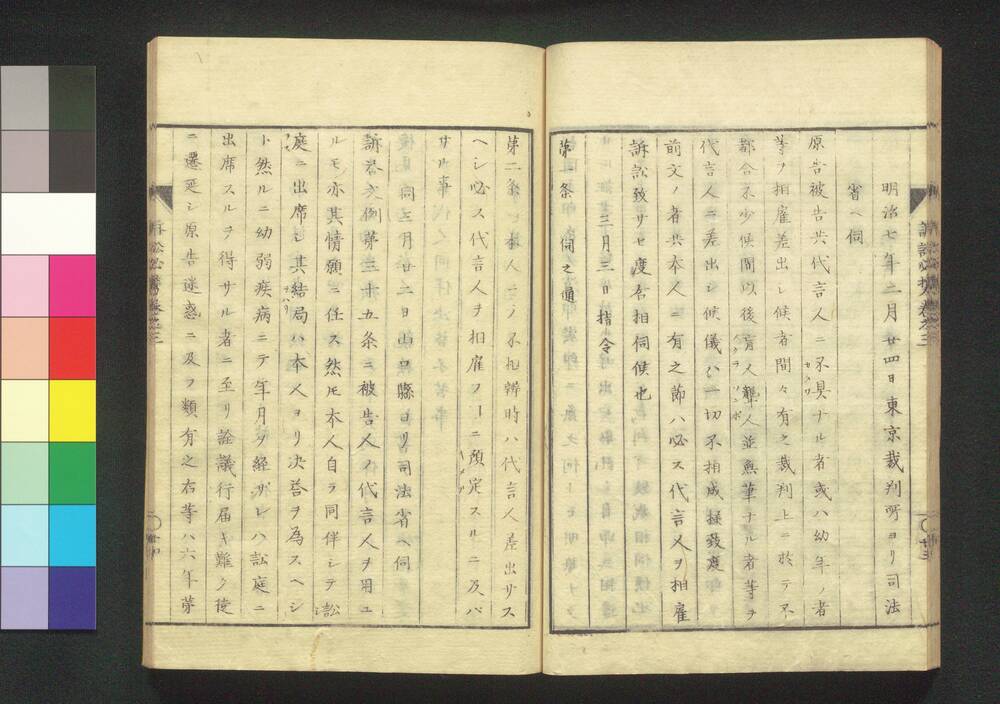 明治七年二月廿四日東京裁判所ヨリ司法
省ヘ伺
原告被告共代言人ニ不具ナル者或ハ幼年ノ者
等ノ相雇差出シ候者間々有之裁判上ニ於テ不
都合不少候間以後盲人聾人並無筆ナル者等ヲ
代言人ニ差出シ候儀ハ一切不相成様致度
前文ノ者共本人ニ有之節ハ必ス代言人ヲ相雇
訴訟致サセ度此段相伺候也
三月三日指令
第一条 伺之通
第二条 本人ニノ不相辨時ハ代言人差出サス
ヘシ必ス代言人ヲ相雇フヿニ預定スルニ及ハ
サル事
同三月廿二日山口縣ヨリ司法省ヘ伺
訴答文例第三十五条ニ被告人ノ代言人ヲ用ユ
ルモ亦其情願ニ任ス然𪜈本人自ラ同伴シテ訟
庭ニ出席シ其結局ハ本人ヨリ決答ヲ為スヘシ
ト然ルニ幼弱疾病ニテ年月ヲ経ザレハ訟庭ニ
出席スルヲ得サル者ニ至リ詮議行届キ難ク徒
ニ遷延シ原告迷惑ニ及フ類有之右等ハ六年第